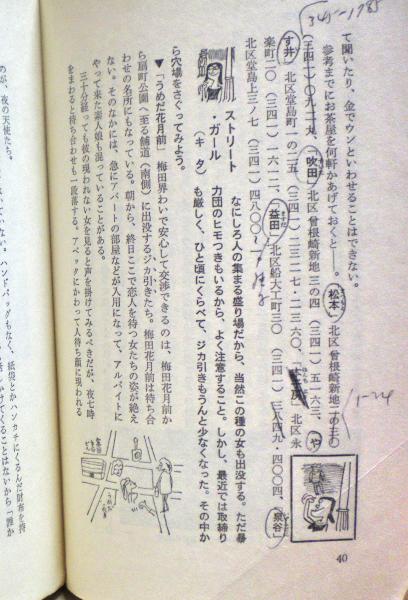 345-1985
て聞いたり、金でウンといわせることはできない。
参考までにお茶屋を何軒かあげておくと――。「松本」北区曾根崎新地二の七〇
(三四一)〇九二一九、「吹田」北区曾根崎新地三の四(三四一)五一六三、「や
す井」北区堂島町一の二五(三四一)二三二七・二三六〇、 北区永
楽町一〇(三四一)一六一二、「益田」北区船大工町三〇(三四一)三八四九・四〇〇四、「泉谷」
北区堂島上三ノ七(三四一)四八〇〇
1-24
ストリート
・ガール
(キタ)
なにしろ人の集まる盛り場だから、当然この種の女も出没する。ただ暴
力団のヒモつきもいるから、よく注意すること。しかし、最近では取締り
も厳しく、ひと頃にくらべて、ジカ引きもうんと少なくなった。その中か
ら穴場をさぐってみよう。
▼「うめだ花月前」 梅田界わいで安心して交渉できるのは、梅田花月前か
ら扇町公園へ至る舗道(南側)に出没するジカ引きたち。梅田花月前は待ち合
わせの名所にもなっている。朝から、終日ここで恋人を待つ女たちの姿が絶え
ない。そのなかには、急にアパートの部屋などが入用になって、アルバイトに
やって来た素人娘も混っていることがある。
三十分経っても彼の現われない女を見ると声を掛けてみるべきだが、夜七時
をまわると待ち合わせも一段落する。アベックにかわって人待ち顔に現われる
のが、夜の天使たち。
ハンドバッグもなく、紙袋とかハンカチにくるんだ財布を持
40